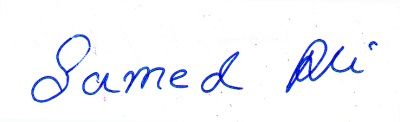 Samed Ali